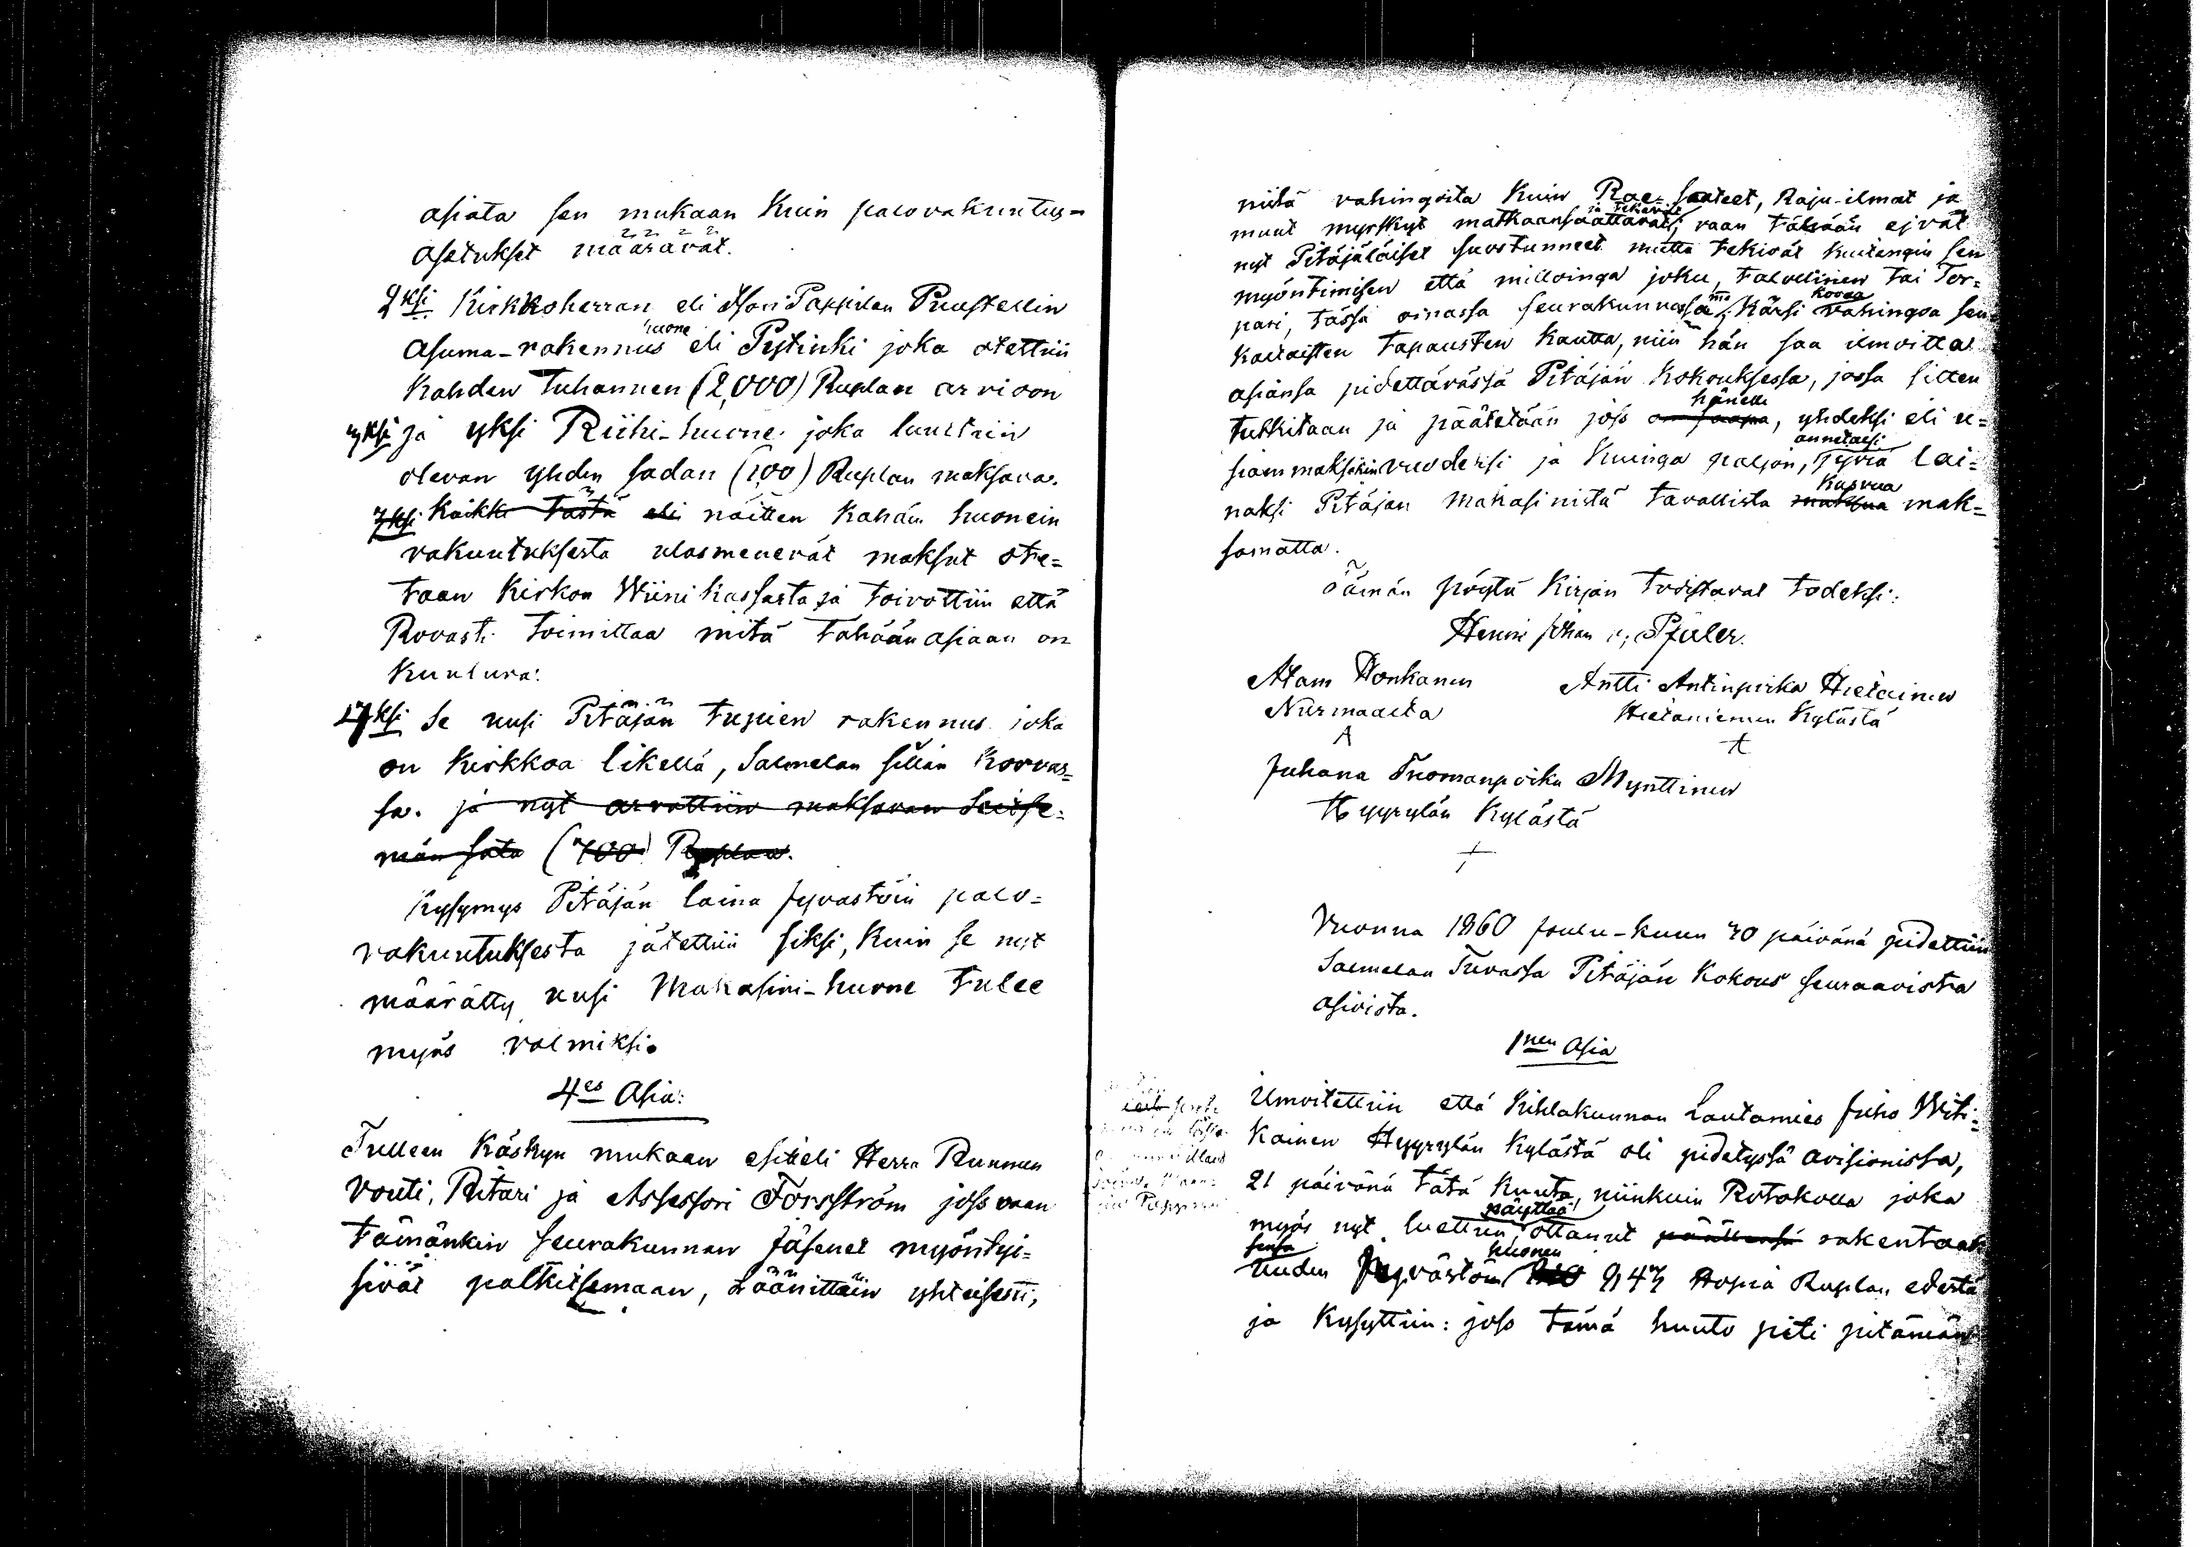 asiata sen mukaan kuin palovakuutus-
asetukset määrävät.
2ksi Kirkkoherran eli Ison Pappilan Puustellin
asuma-rakennus huone eli Pytinki joka otettiin
kahden tuhannen (2,000) Ruplan arvioon
3ksi ja yksi Riihi-huone joka luultiin
olevan yhden sadan (100) Ruplan maksava.
3ksi Kaikki tästä eli näitten kahdin huonein
vakuutuksesta ulosmenevät maksut ote=
taan Kirkon Wiini kassasta ja toivottiin että
Rovasti toimittaa mitä tähään asiaan on
kuuluva:
ksi se uusi Pitäjän tupien rakennus joka
on Kirkkoa likellä, Salmelan sillan korvas=
sa. ja nyt arvattiin maksavan Seitse=
män sata (700) Ruplaa.
Kysymys Pitäjän laina jyvästöin palo=
vakuutuksesta jätettiin siksi, kuin se nyt
määrätty uusi Makasini-huone tulee
myös valmiksi.
4es Asia:
Tulleen Käskyn mukaan esitteli Herra Ruunun
vouti, Ritari ja Assessori Forsström joss vaan
tämänkin seurakunnan jäsenet myöntyi=
sivät palkitsemaan, Läänittäin yhteisesti,
niitä vahingoita kuin Rae-saateet, Raju-ilmat ja
muut myrskyt matkaansaattavat ja tekevät, vaan tähään ejvät
nyt Pitäjäläiset suostunneet mutta tekivät kuitengin sen
myöntimisen että milloinga joku, talollinen tai Tor=
pari, tässä oinassa seurakunnassa, kärsi kovaa vahingoa sen
kaltaisten tapausten kautta, niin hän saa ilmoittaa
asiansa pidettävässä Pitäjän kokouksessa, jossa sitten
tutkitaan ja päätetään joss hänelle, yhdeksi eli u=
siammaksikin vuodeksi ja kuinga paljon, annetaisi jyviä lai=
naksi Pitäjän makasinista tavallista kasvua maksua mak=
samatta.
Tämän pöytä kirjan todistavat todeksi:
Henric Johan Pfaler.
Atam Honkanen
Niirmaalta
Antti Antinpoika Hietainen
Hietaniemen Kylästä
Juhana Tuomanpoika Mynttinen
Hyyrylän Kylästä
Vuonna 1860 Joulu-kuun 30 päivänä pidettiin
Salmelan Tuvassa Pitäjän Kokous seuraavista
asioista.
1nen Asia
Ilmoitettiin että Kihlakunnan Lautamies Juho Witi=
kainen Hyyrylän Kylästä oli pidetyssä avisionissa,
21 päivänä tätä kuuta, niinkuin Protokolla joka
myös nyt luettiin, näyttää ottanut päällensä rakentaak
sensa Uuden Jyvästön huonen 247 Hopia Ruplan edestä
ja kysyttiin: joss tämä huuto piti pitämän